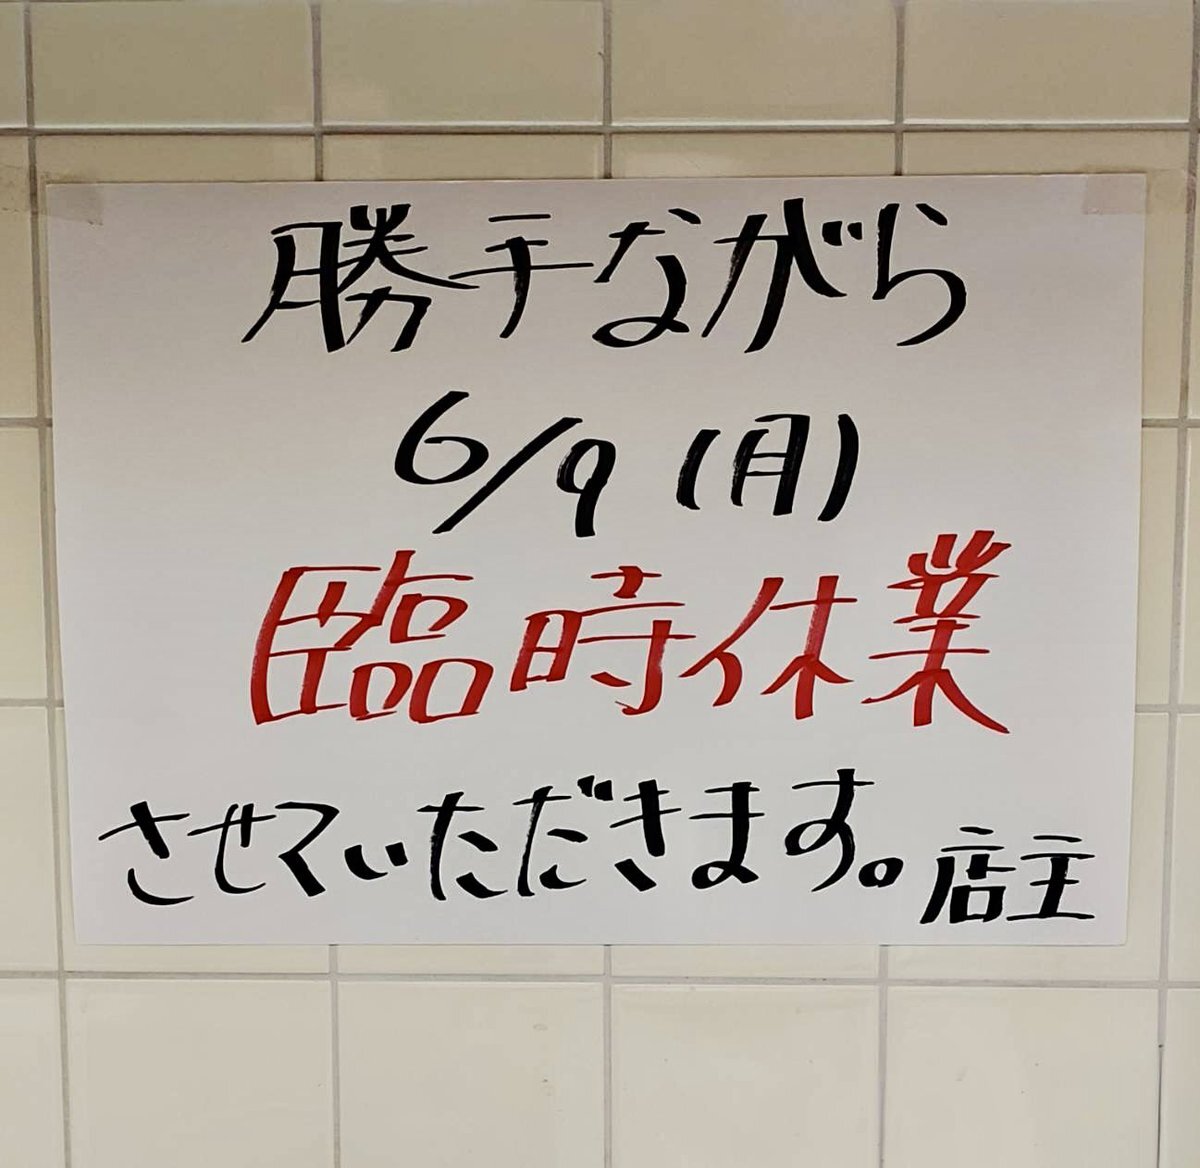 勝手ながら
6/9(月)
臨時休業
させていただきます。店主